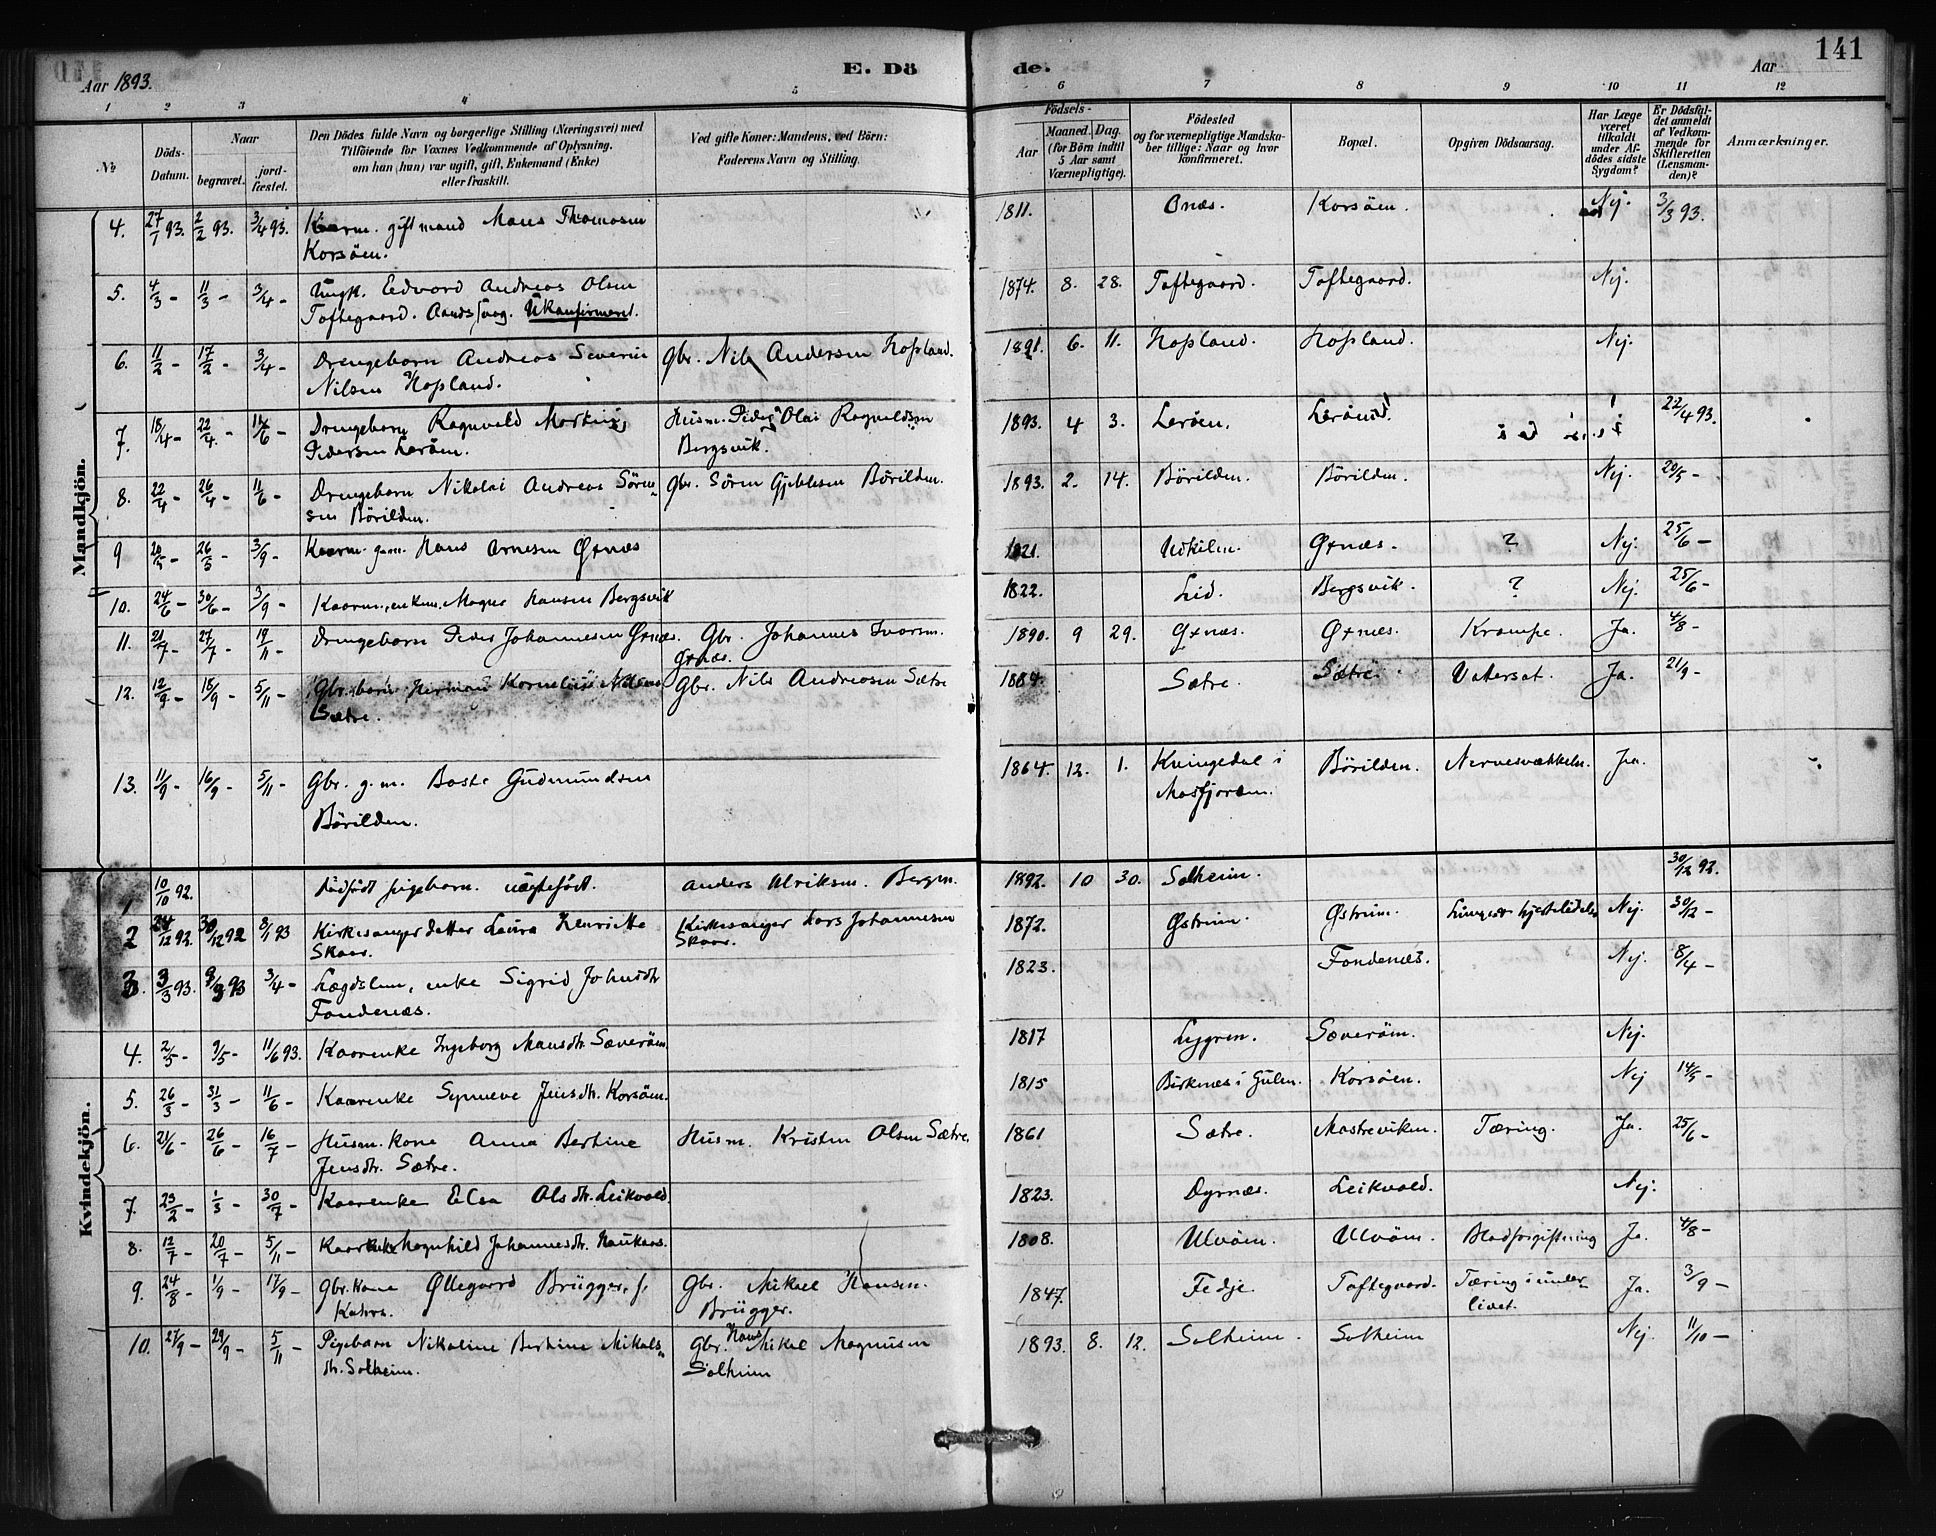 141
Aar 1893. E. Dö de. Aar
1 2 3 4 5 6 7 8 9 10 11 12
№
Döds-Datum.
Naar
begravet.
jord-fæstet.
Den Dödes fulde Navn og borgerlige Stilling (Næringsvei) med
Tilföiende for Voxnes Vedkommende af Oplysning,
om han (hun) var ugift, gift, Enkemand (Enke)
eller fraskilt.
Ved gifte Koner: Mandens, ved Börn:
Faderens Navn og Stilling.
Födsels-
Aar
Maaned. Dag.
(for Börn indtil
5 Aar samt
Værnepligtige).
Födested
og for værnepligtige Mandska-
ber tillige: Naar og hvor
konfirmeret.
Bopæl.
Opgiven Dödsaarsag.
Har Læge
været
tilkaldt
under Af-
dödes sidste
Sygdom?
Er Dödsfal-
det anmeldt
af Vedkom-
mende for
Skifteretten
(Lensman-
den)?
Anmærkninger.
Mandkjön.
4. 27/1 93. 2/2 93. 3/4 93. Kaarm. giftmand Mons Thomasen 1811. Onæs. Korsöen. Nej. 3/3 93.
Korsöen.
5. 4/3 - 11/3 - 3/4 - Ungk. Edvard Andreas Olsen 1874. 8. 28. Toftegaard. Toftegaard. Nej.
Toftegaard. Aandssvag. Ukonfirmeret.
6. 11/2 - 17/2 - 3/4 - Drengebarn Andreas Severin Gbr. Nils Andersen Hopland. 1891. 6. 11. Hopland. Hopland. Nej.
Nilsen Hopland.
7. 18/4 - 22/4 - 11/6 - Drengebarn Ragnvald Martin Husm. Peder Olai Ragnvaldsen 1893. 4 3. Leröen. Leröen 22/4 93.
Pedersen Leröen. Bergsvik.
8. 22/4 - 26/4 - 11/6 - Drengebarn Nikolai Andreas Sören- Gbr. Sören Gjertsen Börilden. 1893. 2. 14. Börilden. Börilden. Nej. 20/5 -
sen Börilden.
9 20/5 - 26/5 - 3/9 - Kaarm. g.m. Hans Arnesen Øxnæs 1821. Udkilen. Øxnæs. ? Nej. 25/6 -
10. 24/6 - 30/6 - 3/9 - Kaarm., enkem. Mogns Hansen Bergsvik 1822. Lid. Bergsvik. ? Nej. 25/6 -
11. 21/7 - 27/7 - 19/11 - Drengebarn Peder Johannesen Øxnæs. Gbr. Johannes Ivarsen 1890. 9 29. Øxnæs. Øxnæs. Krampe. Ja. 4/8 -
Øxnæs.
12. 12/9 - 15/9 - 5/11 - Gbr. barn Herman Kornelius Nilsen Gbr. Nils Andreasen Sætre 1884. Sætre. Sætre. Vatersot. Ja. 21/9 -
Sætre.
13. 11/9 - 16/9 - 5/11 - Gbr. g.m. Baste Gudmundsen 1864. 12. 1. Kvingedal i Börilden. Nervesvækkelse. Ja.
Börilden. Masfjorden.
Kvindekjön.
1 10/10 92. Dödfödt pigebarn. uægtefödt. Anders Ulriksen. Bergen. 1892. 10 30. Solheim. 30/12 92.
2 24/12 92. 30/12 92 8/1 93 Kirkesanger datter Lavra Henriette Kirkesanger Lars Johannesen 1872. Østrem. Østrem. Nej. 30/12 -
Skaar. Skaar.
3. 3/3 93. 9/3 93 3/4 - Lægdslem, enke Sigrid Johnsdtr. 1823. Fondenæs. Nej. 8/4 -
Fondenæs.
4. 2/5 - 9/5 - 11/6 93. Kaarenke Ingeborg Monsdtr. Sæveröen. 1817 Lygren. Sæveröen. Nej.
5. 26/3 - 31/3 - 11/6 - Kaarenke Synneve Jensdtr. Korsöen. 1815 Birknes i Gulen. Korsöen. Nej 14/5 -
6. 21/6 - 26/6 - 16/7 - Husm. kone Anna Bertine Husm. Kristen Olsen Sætre. 1861 Sætre. Mastrevikem. Tæring. Ja. 25/6 -
Jensdtr. Sætre.
7. 23/2 - 1/3 - 30/7 - Kaarenke Elsa Olsdtr. Leikvold. 1823. Dyrnæs. Leikvold. Nej.
8. 12/7 - 20/7 - 5/11 - Kaarenke Johannesdtr. Haukaas. 1808. Ulvöen. Ulvöen. Blodforgiftning Ja. 4/8 -
9. 24/8 - 1/9 - 17/9 - Gbr. kone Øllegaard Brügger, f. Gbr. Mikel Hansen 1847. Fedje Toftegaard. Tæring i under- Ja. 3/9 -
Kahrs. Brügger. livet.
10. 27/9 - 29/9 - 5/11 - Pigebarn Nikoline Bertine Mikels- Gbr. Hans Mikel Magnusen 1893. 8. 12. Solheim. Solheim Nej. 11/10 -
dtr. Solheim. Solheim